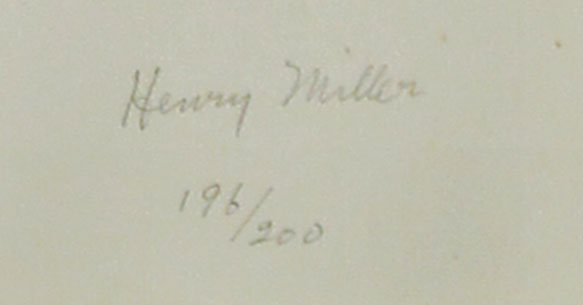 Henry Miller
196/200